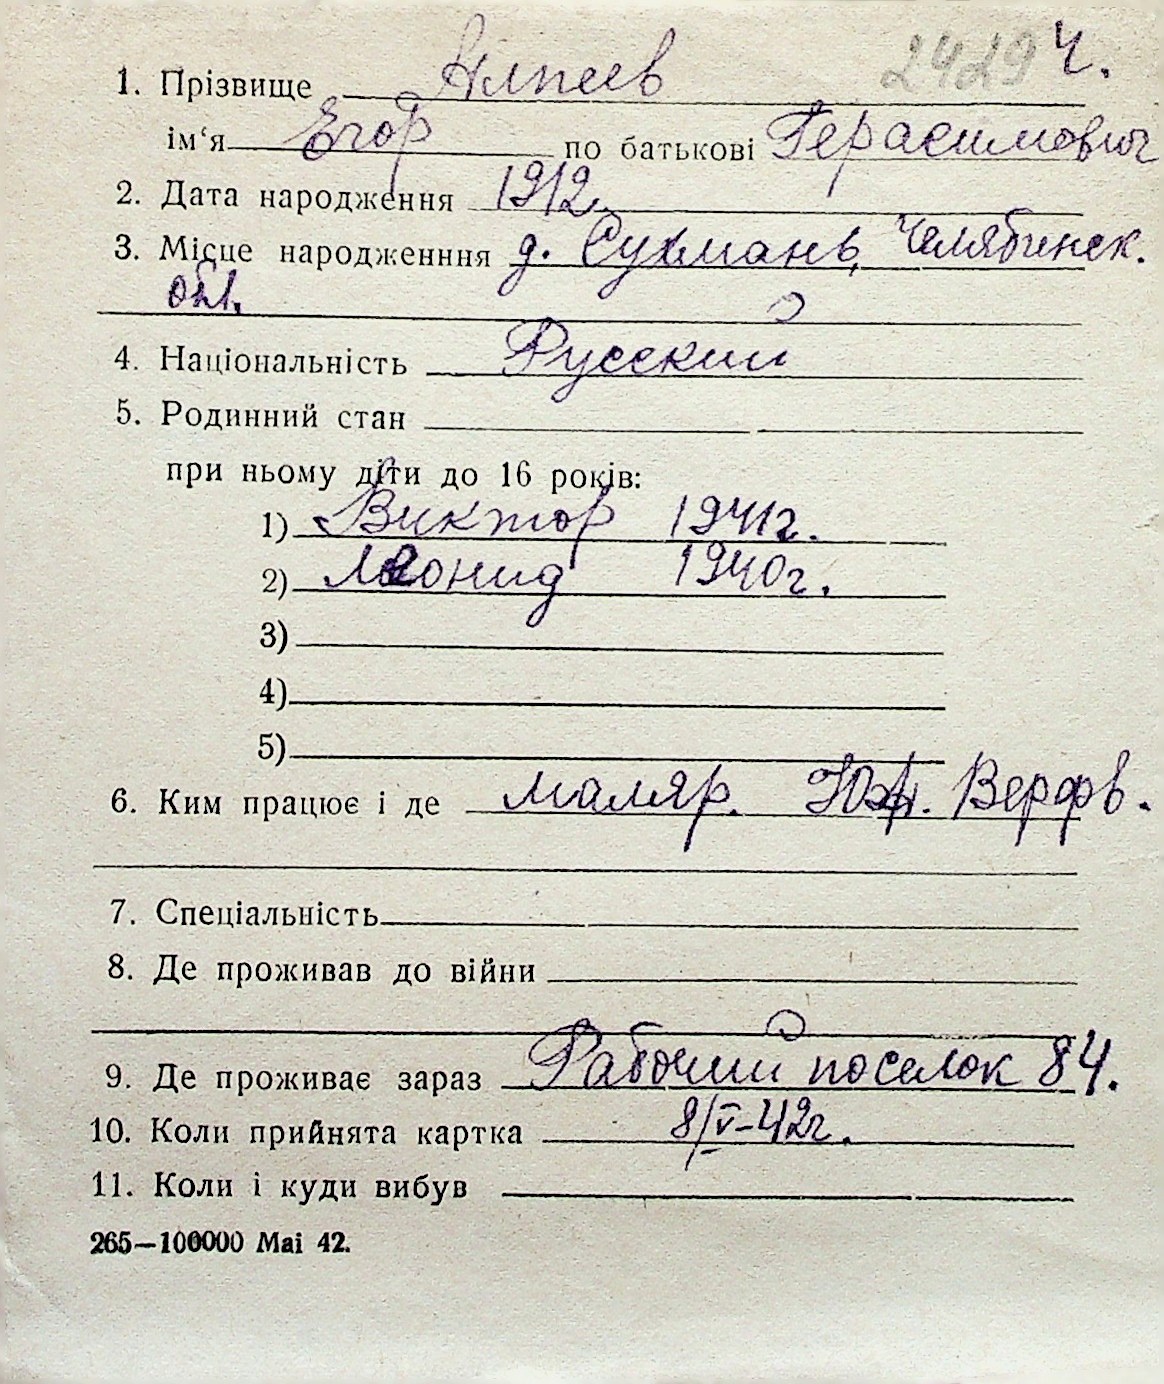 2429 ч.
1. Прізвище Алпеев
ім‘я Егор по батькові Герасимович
2. Дата народження 1912
3. Місце народженння д. Сухмань, Челябинск.
обл.
4. Національність Русский
5. Родинний стан
при ньому діти до 16 років:
1) Виктор 1941г.
2) Леонид 1940г.
3)
4)
5)
6. Ким працює і де маляр. Юж. Верфь.
7. Спеціальність
8. Де проживав до війни
9. Де проживає зараз Рабочий поселок 84.
10. Коли прийнята картка 8/V-42г.
11. Коли і куди вибув
265—100000 Mai 42.